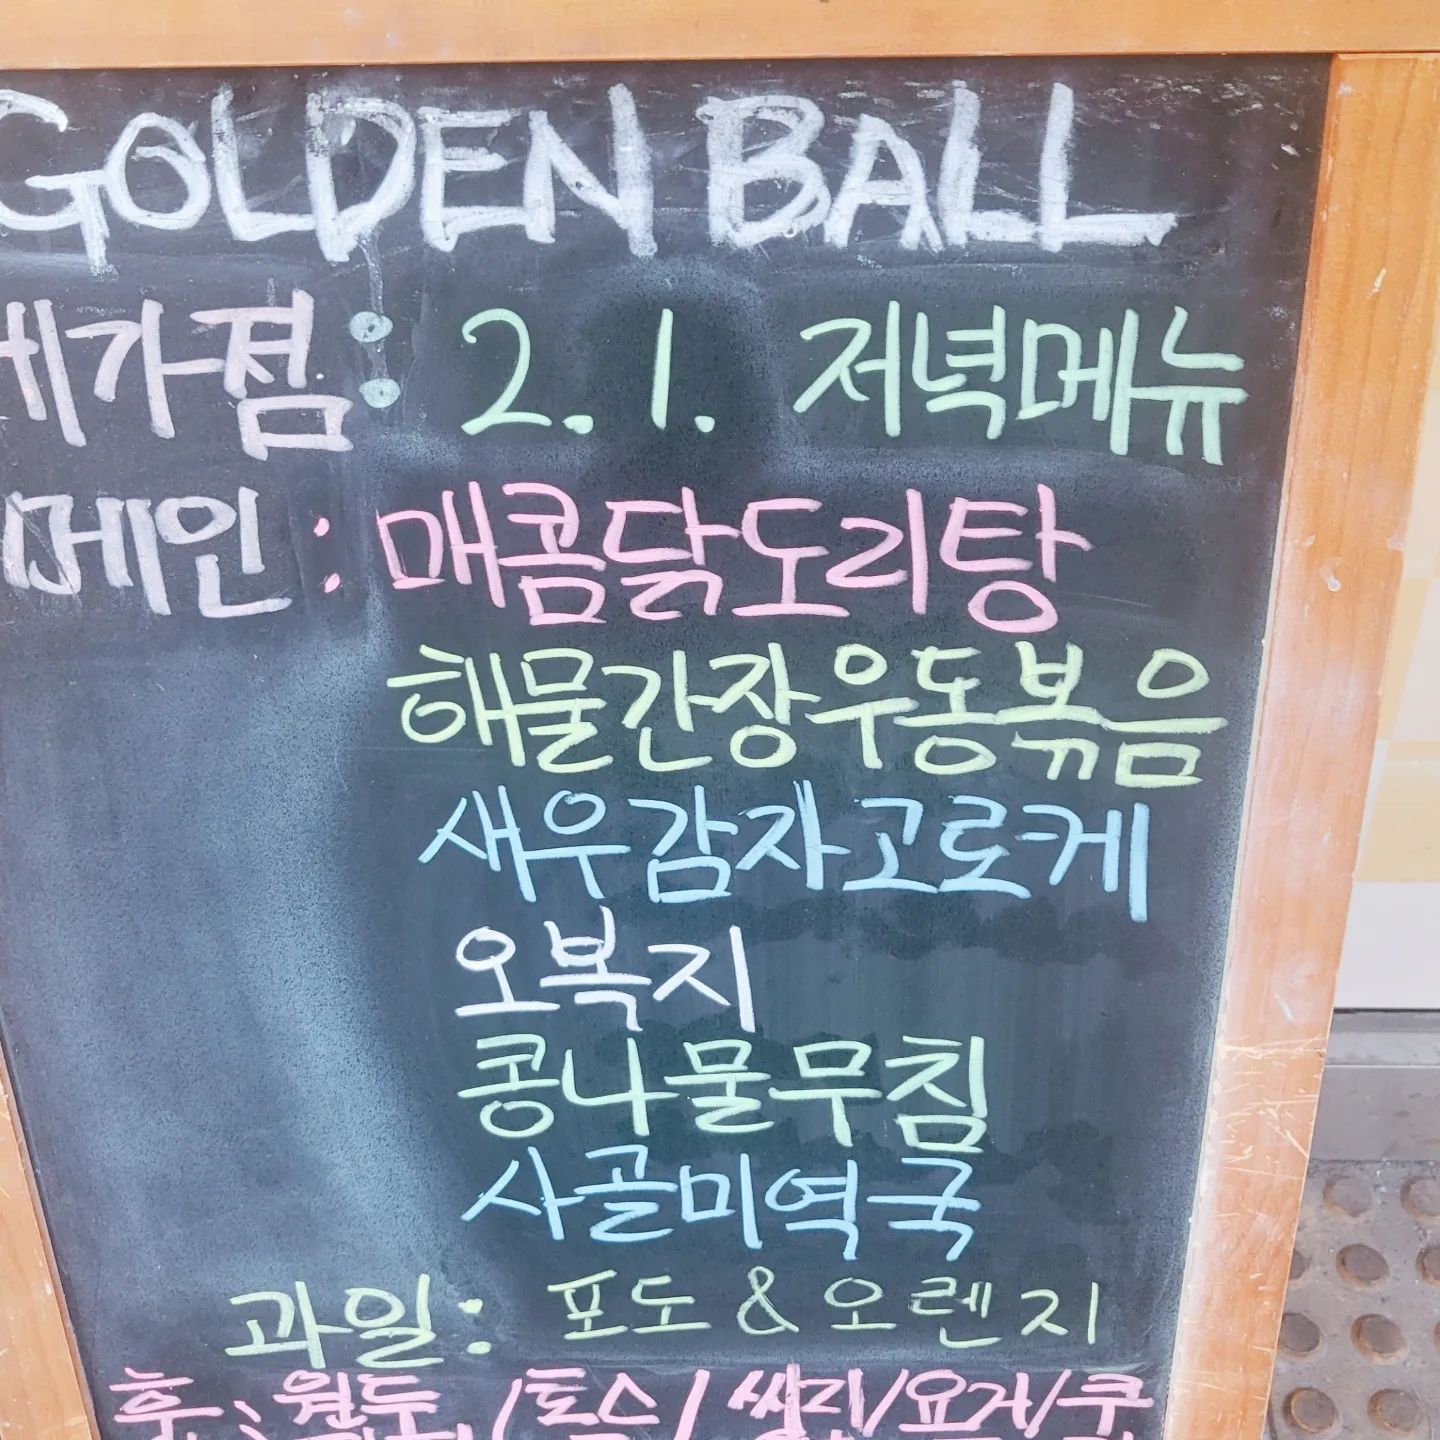 GOLDEN BALL
세가점: 2.1. 저녁메뉴
메인: 매콤닭도리탕
해물간장우동볶음
새우감자고로케
오복지
콩나물무침
사골미역국
과일: 포도 & 오렌지
후: 원두 /토스/ 쌜러/요거/쿠